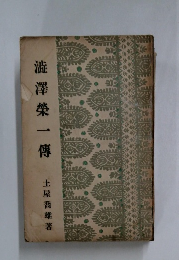 澁澤榮一傳
土屋喬雄著